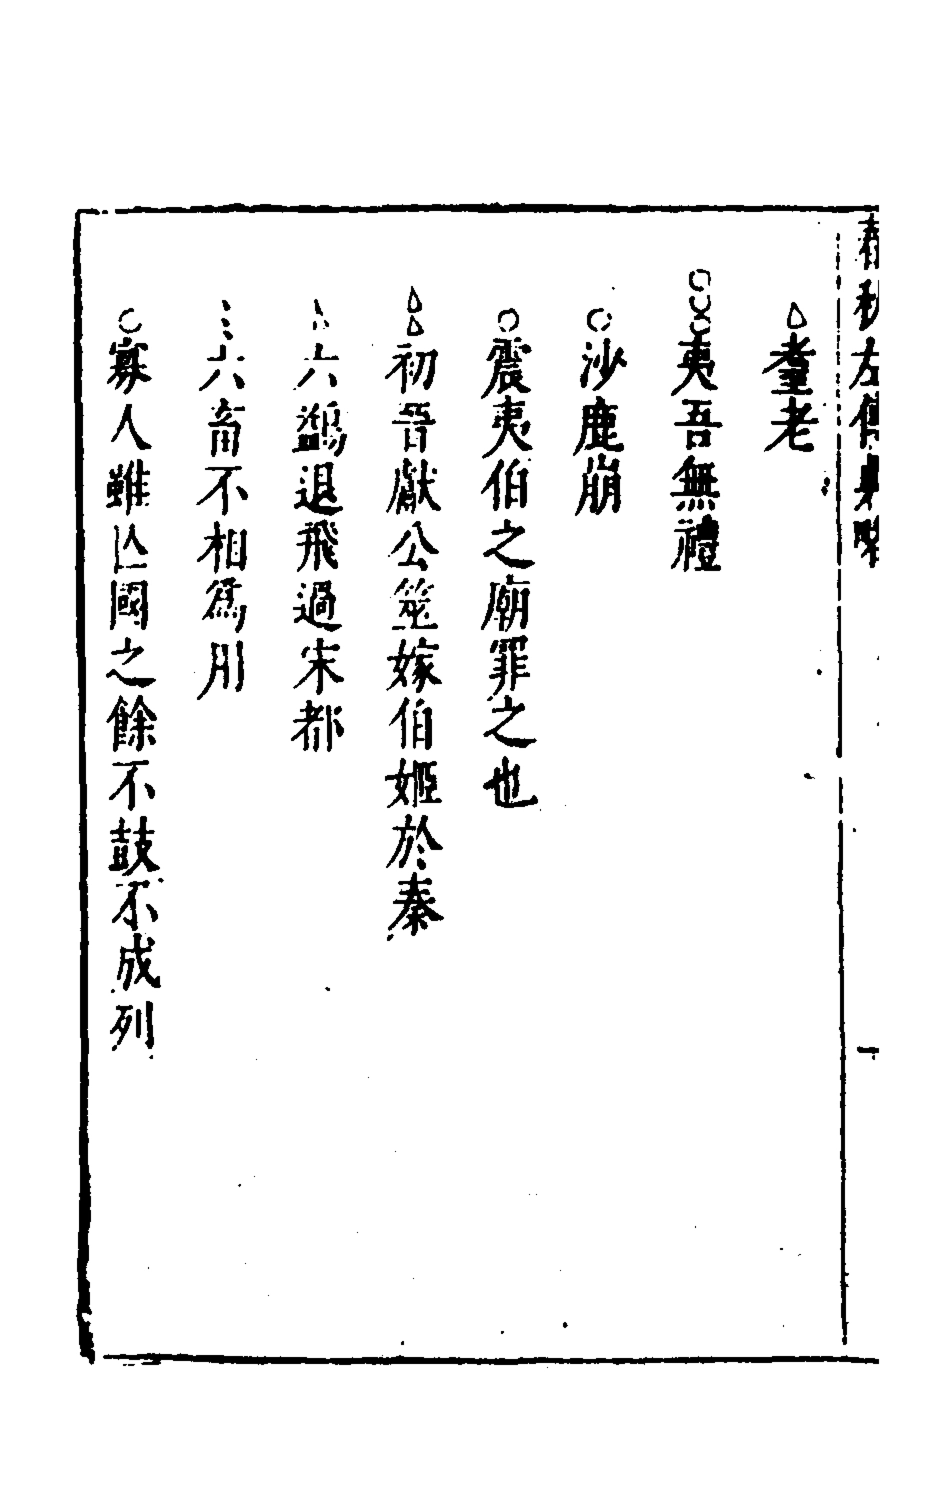 春秋左傳典略
△耋老
○○○夷吾無禮
○沙鹿崩
○震夷伯之廟罪之也
△△初晉獻公筮嫁伯姬於秦
六鷁退飛過宋都
六畜不相爲用
○寡人雖亾國之餘不鼓不成列